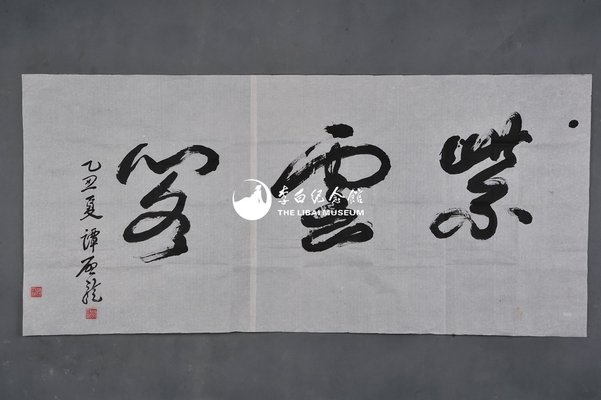 紫雲閣
乙丑夏 譚啟龍
李白纪念館
THE LIBAI MUSEUM